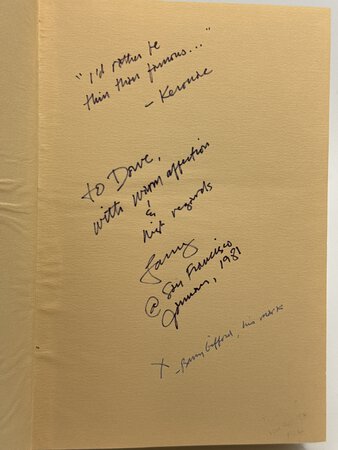 "I'd rather be
thin than famous..."
- Kerouac
To Dave,
with warm affection
&
best regards
Larry
@ San Francisco
January, 1981
X - Barry Gifford, his mark